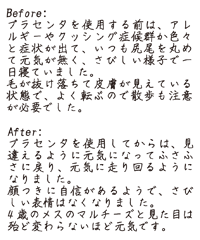 Before:
プラセンタを使用する前は、アレ
ルギーやクッシング症候群か色々
と症状が出て、いつも尻尾を丸め
て元気が無く、さびしい様子で一
日寝ていました。
毛が抜け落ちて皮膚が見えている
状態で、よく転ぶので散歩も注意
が必要でした。
After:
プラセンタを使用してからは、見
違えるように元気になってふさふ
さに戻り、元気に走り回るように
なりました。
顔つきに自信があるようで、さび
しい表情はなくなりました。
4歳のメスのマルチーズと見た目は
殆ど変わらないほど元気です。